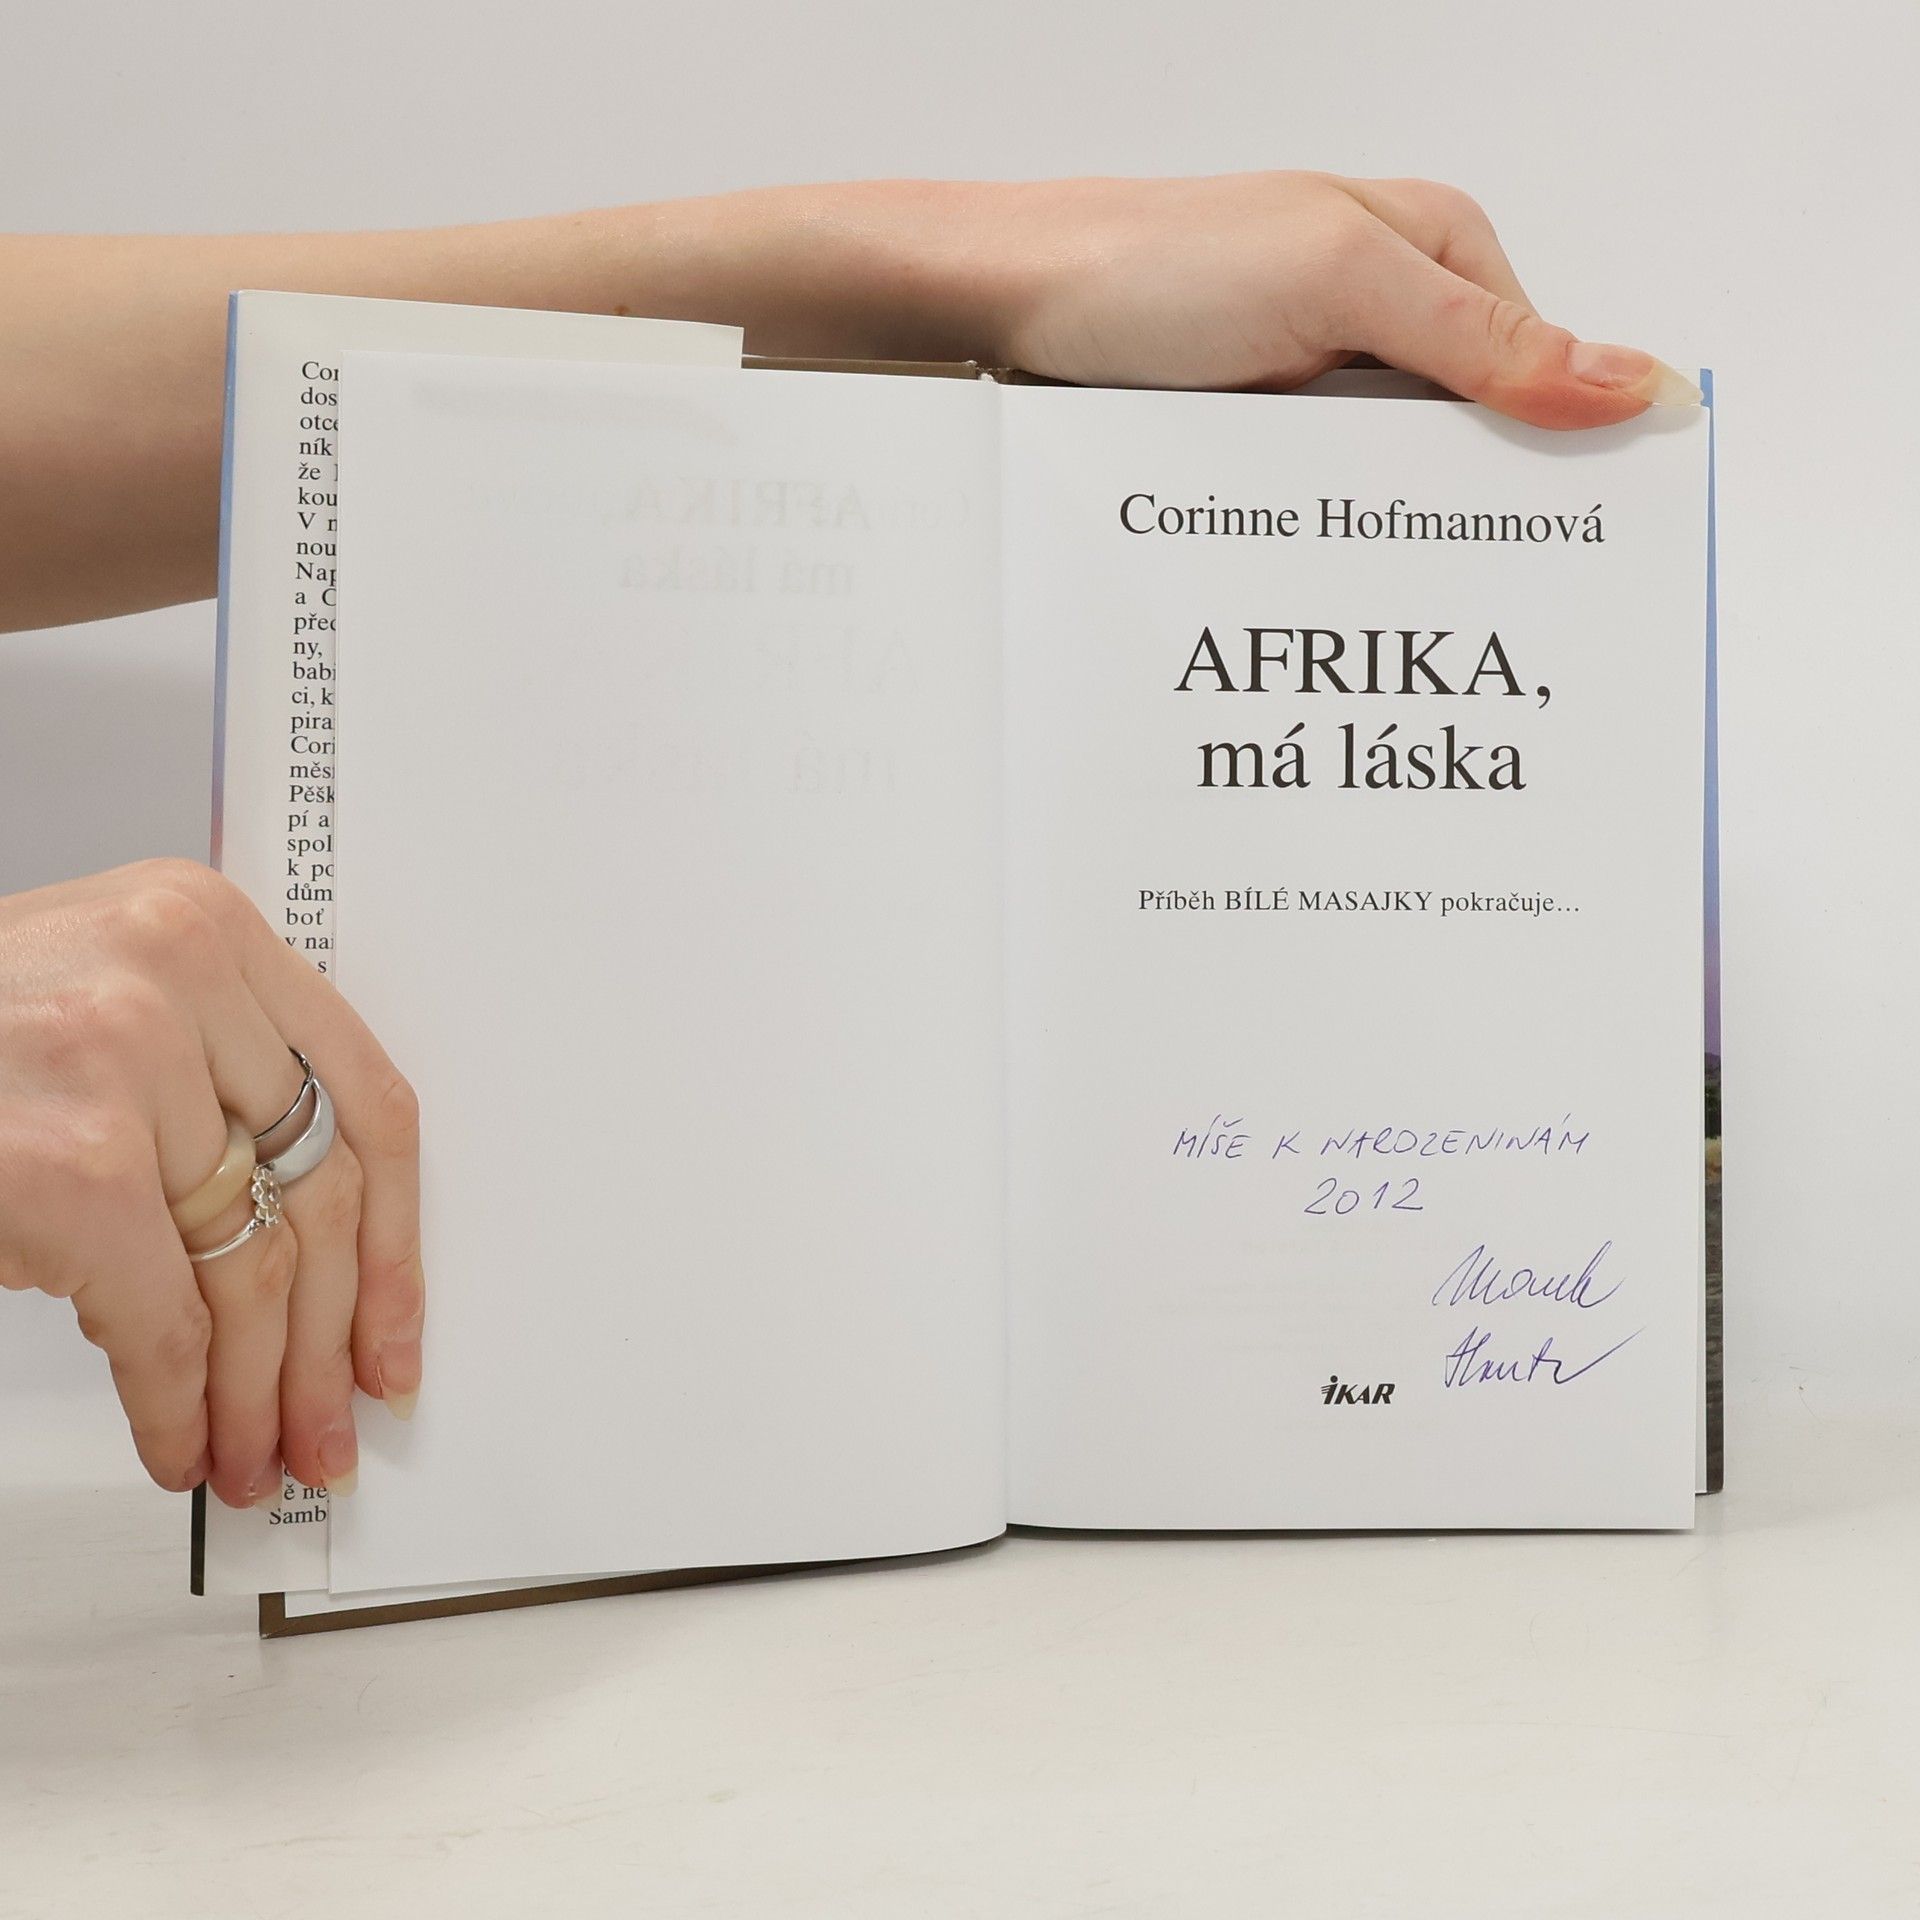 Cor
dos
otce
ník
že
kou
V n
nou
Nap
a C
před
ny,
babi
ci, k
pira
Cori
měs
Pěšk
pí a
spol
k po
dům
boť
v nai
s
ě ne
Samb
Corinne Hofmannová
AFRIKA,
má láska
Příběh BÍLÉ MASAJKY pokračuje...
MÍŠE K NAROZENINÁM
2012
IKAR